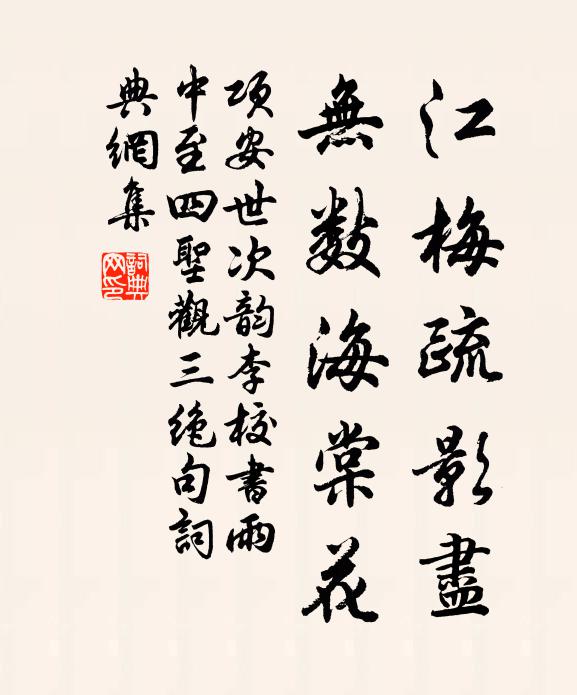 江梅疏影盡
無數海棠花
項安世次韵李校書雨
中至四聖觀三絶句詞
典網集
詞典網印